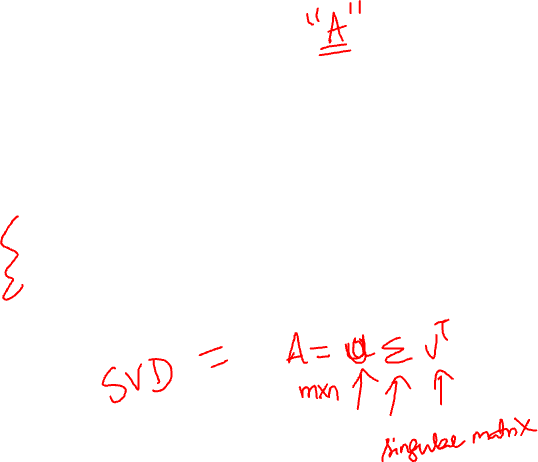 "A"
{
SVD = A = U Σ V^T
mxn
singular matrix